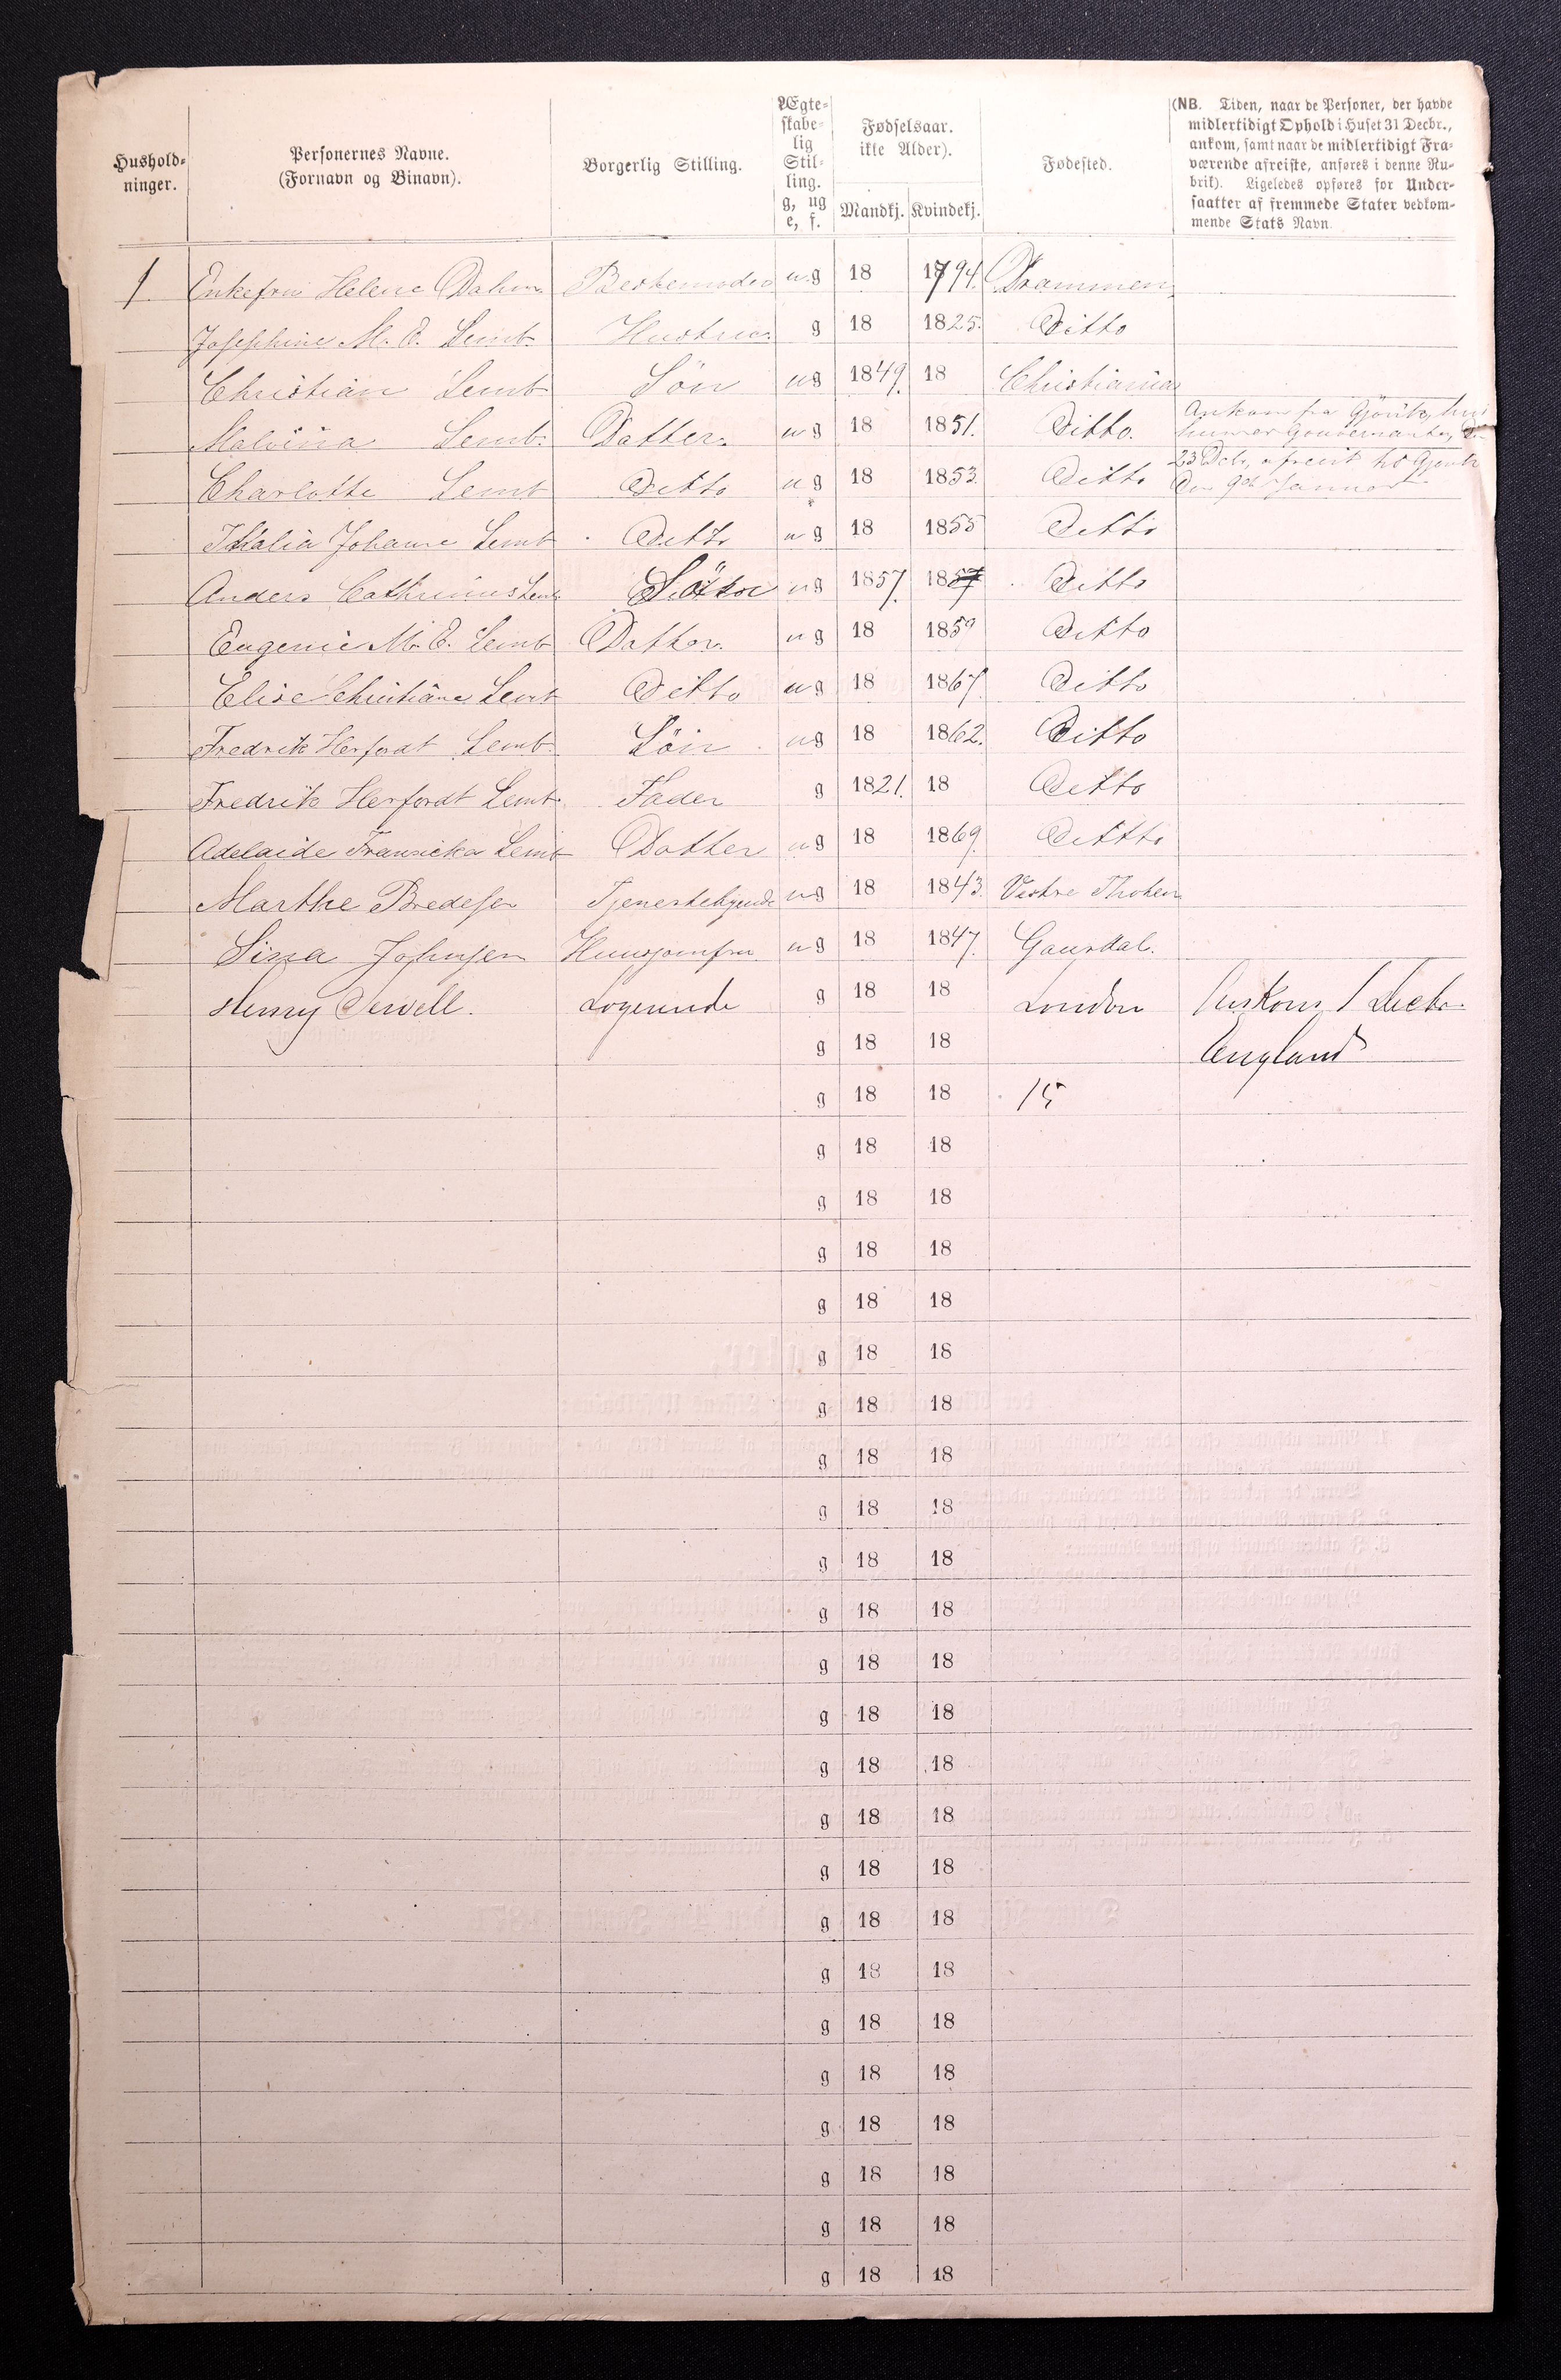 Hushold-
ninger.
Personernes Navne.
(Fornavn og Binavn).
Borgerlig Stilling.
Ægte-
skabe-
lig
Stil-
ling.
g, ug
e, f.
Fødselsaar.
ikke Alder).
Mandkj. Kvindekj.
Fødested.
(NB. Tiden, naar de Personer, der havde
midlertidigt Ophold i Huset 31 Decbr.,
ankom, samt naar de midlertidigt Fra-
værende afreiste, anføres i denne Ru-
brik). Ligeledes opføres for Under-
saatter af fremmede Stater vedkom-
mende Stats Navn.
1. Enkefru Helene Dahm Bestemoder ug 18 1794. Drammen
Josephine M. E. Lemb. Hustru g 18 1825. Ditto
Christian Lemb Sön ug 1849. 18 Christiania
Malvina Lemb. Datter. ug 18 1851. Ditto. Ankom fra Gjövik,
Gouvernante,
Charlotte Lemb Ditto ug 18 1853. Ditto 23 Dcbr, afreist
Den 9de Januar
Thalia Johanne Lemb Ditto ug 18 1855 Ditto
Anders Cathrinus Lemb Sön ug 1857. 1857 Ditto
Eugenie M. E. Lemb Datter. ug 18 1859 Ditto
Elise Christiane Lemb Ditto ug 18 1867. Ditto
Fredrik Herfordt Lemb. Sön ug 18 1862. Ditto
Fredrik Herfordt Lemb. Fader g 1821. 18 Ditto
Adelaide Fransiska Lemb Datter ug 18 1869. Ditto
Marthe Bredesen Tjenestepige ug 18 1843. Vestre Thoten
Sina Johnsen Huusjomfru ug 18 1847. Gausdal.
Henry Jewell. Logerende g 18 18 London Ankom 1 Decbr
g 18 18 England
g 18 18 15
g 18 18
g 18 18
g 18 18
g 18 18
g 18 18
g 18 18
g 18 18
g 18 18
g 18 18
g 18 18
g 18 18
g 18 18
g 18 18
g 18 18
g 18 18
g 18 18
g 18 18
g 18 18
g 18 18
g 18 18
g 18 18
g 18 18
g 18 18